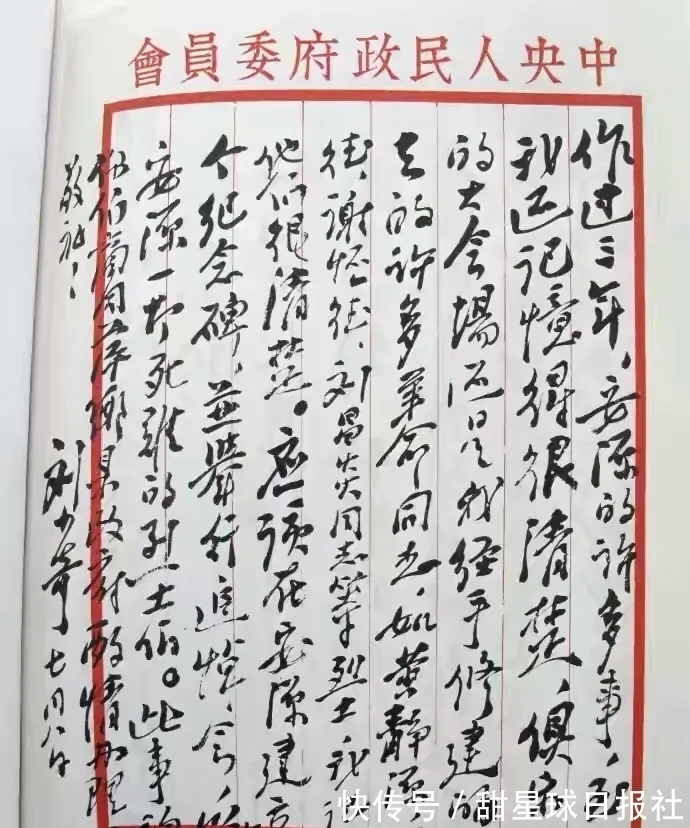 中央人民政府委員會
作过三年,安源的许多事,
我还记憶得很清楚,俱
的大会場还是我经手修建的
去的许多革命同志,如黄静源
谢怀德,刘昌炎同志等烈士,我
他们很清楚。应该在安源建
个纪念碑,並举行追悼会,
安源一切死难的烈士们。此事
你们商同萍鄉县政府酌情办理
敬礼!
刘少奇 七月八日
快传号/甜星球日报社